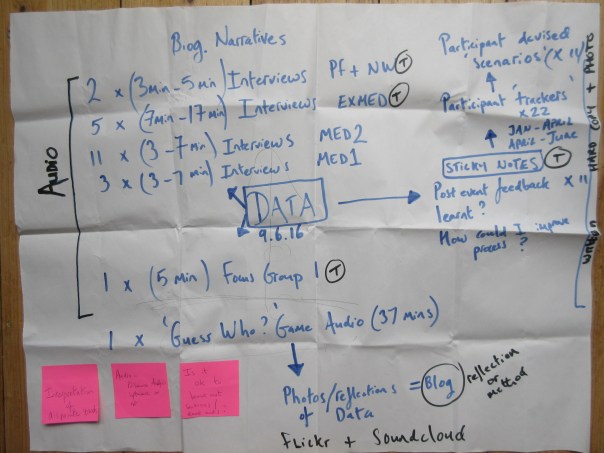 Biog. Narratives
AUDIO
2 x (3min-5min) Interviews PF + NW T
5 x (7min-17min) Interviews EXMED T
11 x (3-7min) Interviews MED2
3 x (3-7min) Interviews MED1
DATA
9.6.16
1 x (5 min) Focus Group 1 T
1 x 'Guess Who?' Game Audio (37 mins)
Photos/reflections of Data = Blog reflection or method
Flickr + Soundcloud
Participant devised
'scenarios' (x 11)
Participant 'trackers'
x22
JAN-APRIL
APRIL-JUNE
STICKY NOTES T
Post event feedback x 11
learnt?
How could I improve
process?
WRITTEN HARD COPY + PHOTO
Interpretation
Is it
ok to